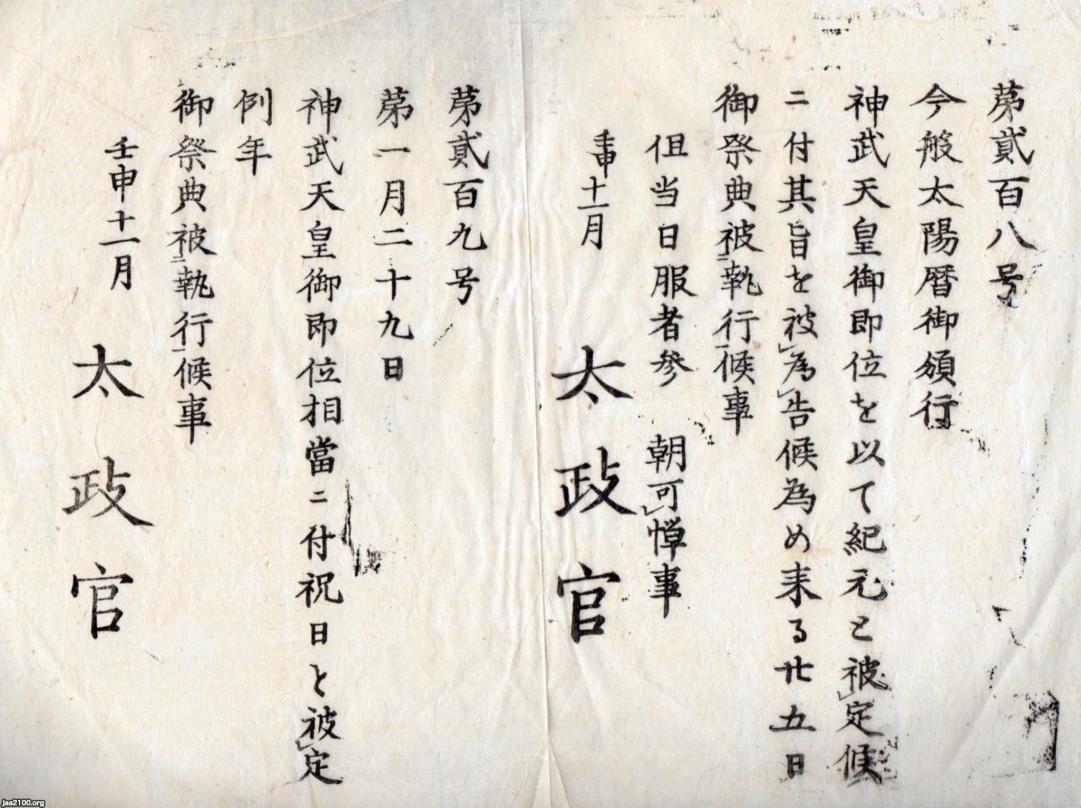 第貳百八号
今般太陽暦御頒行
神武天皇御即位を以て紀元と被定候
ニ付其旨を被為告候為め来る廿五日
御祭典被執行候事
但当日服者参 朝可憚事
壬申十一月 太政官
第貳百九号
第一月二十九日
神武天皇御即位相當ニ付祝日と被定
例年
御祭典被執行候事
壬申十一月 太政官
jaa2100.org